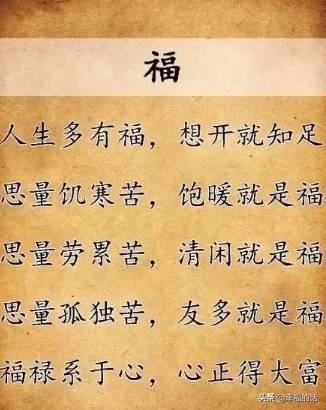 福
人生多有福，想开就知足
思量饥寒苦，饱暖就是福
思量劳累苦，清闲就是福
思量孤独苦，友多就是福
福禄系于心，心正得大富
头条@幸福的话